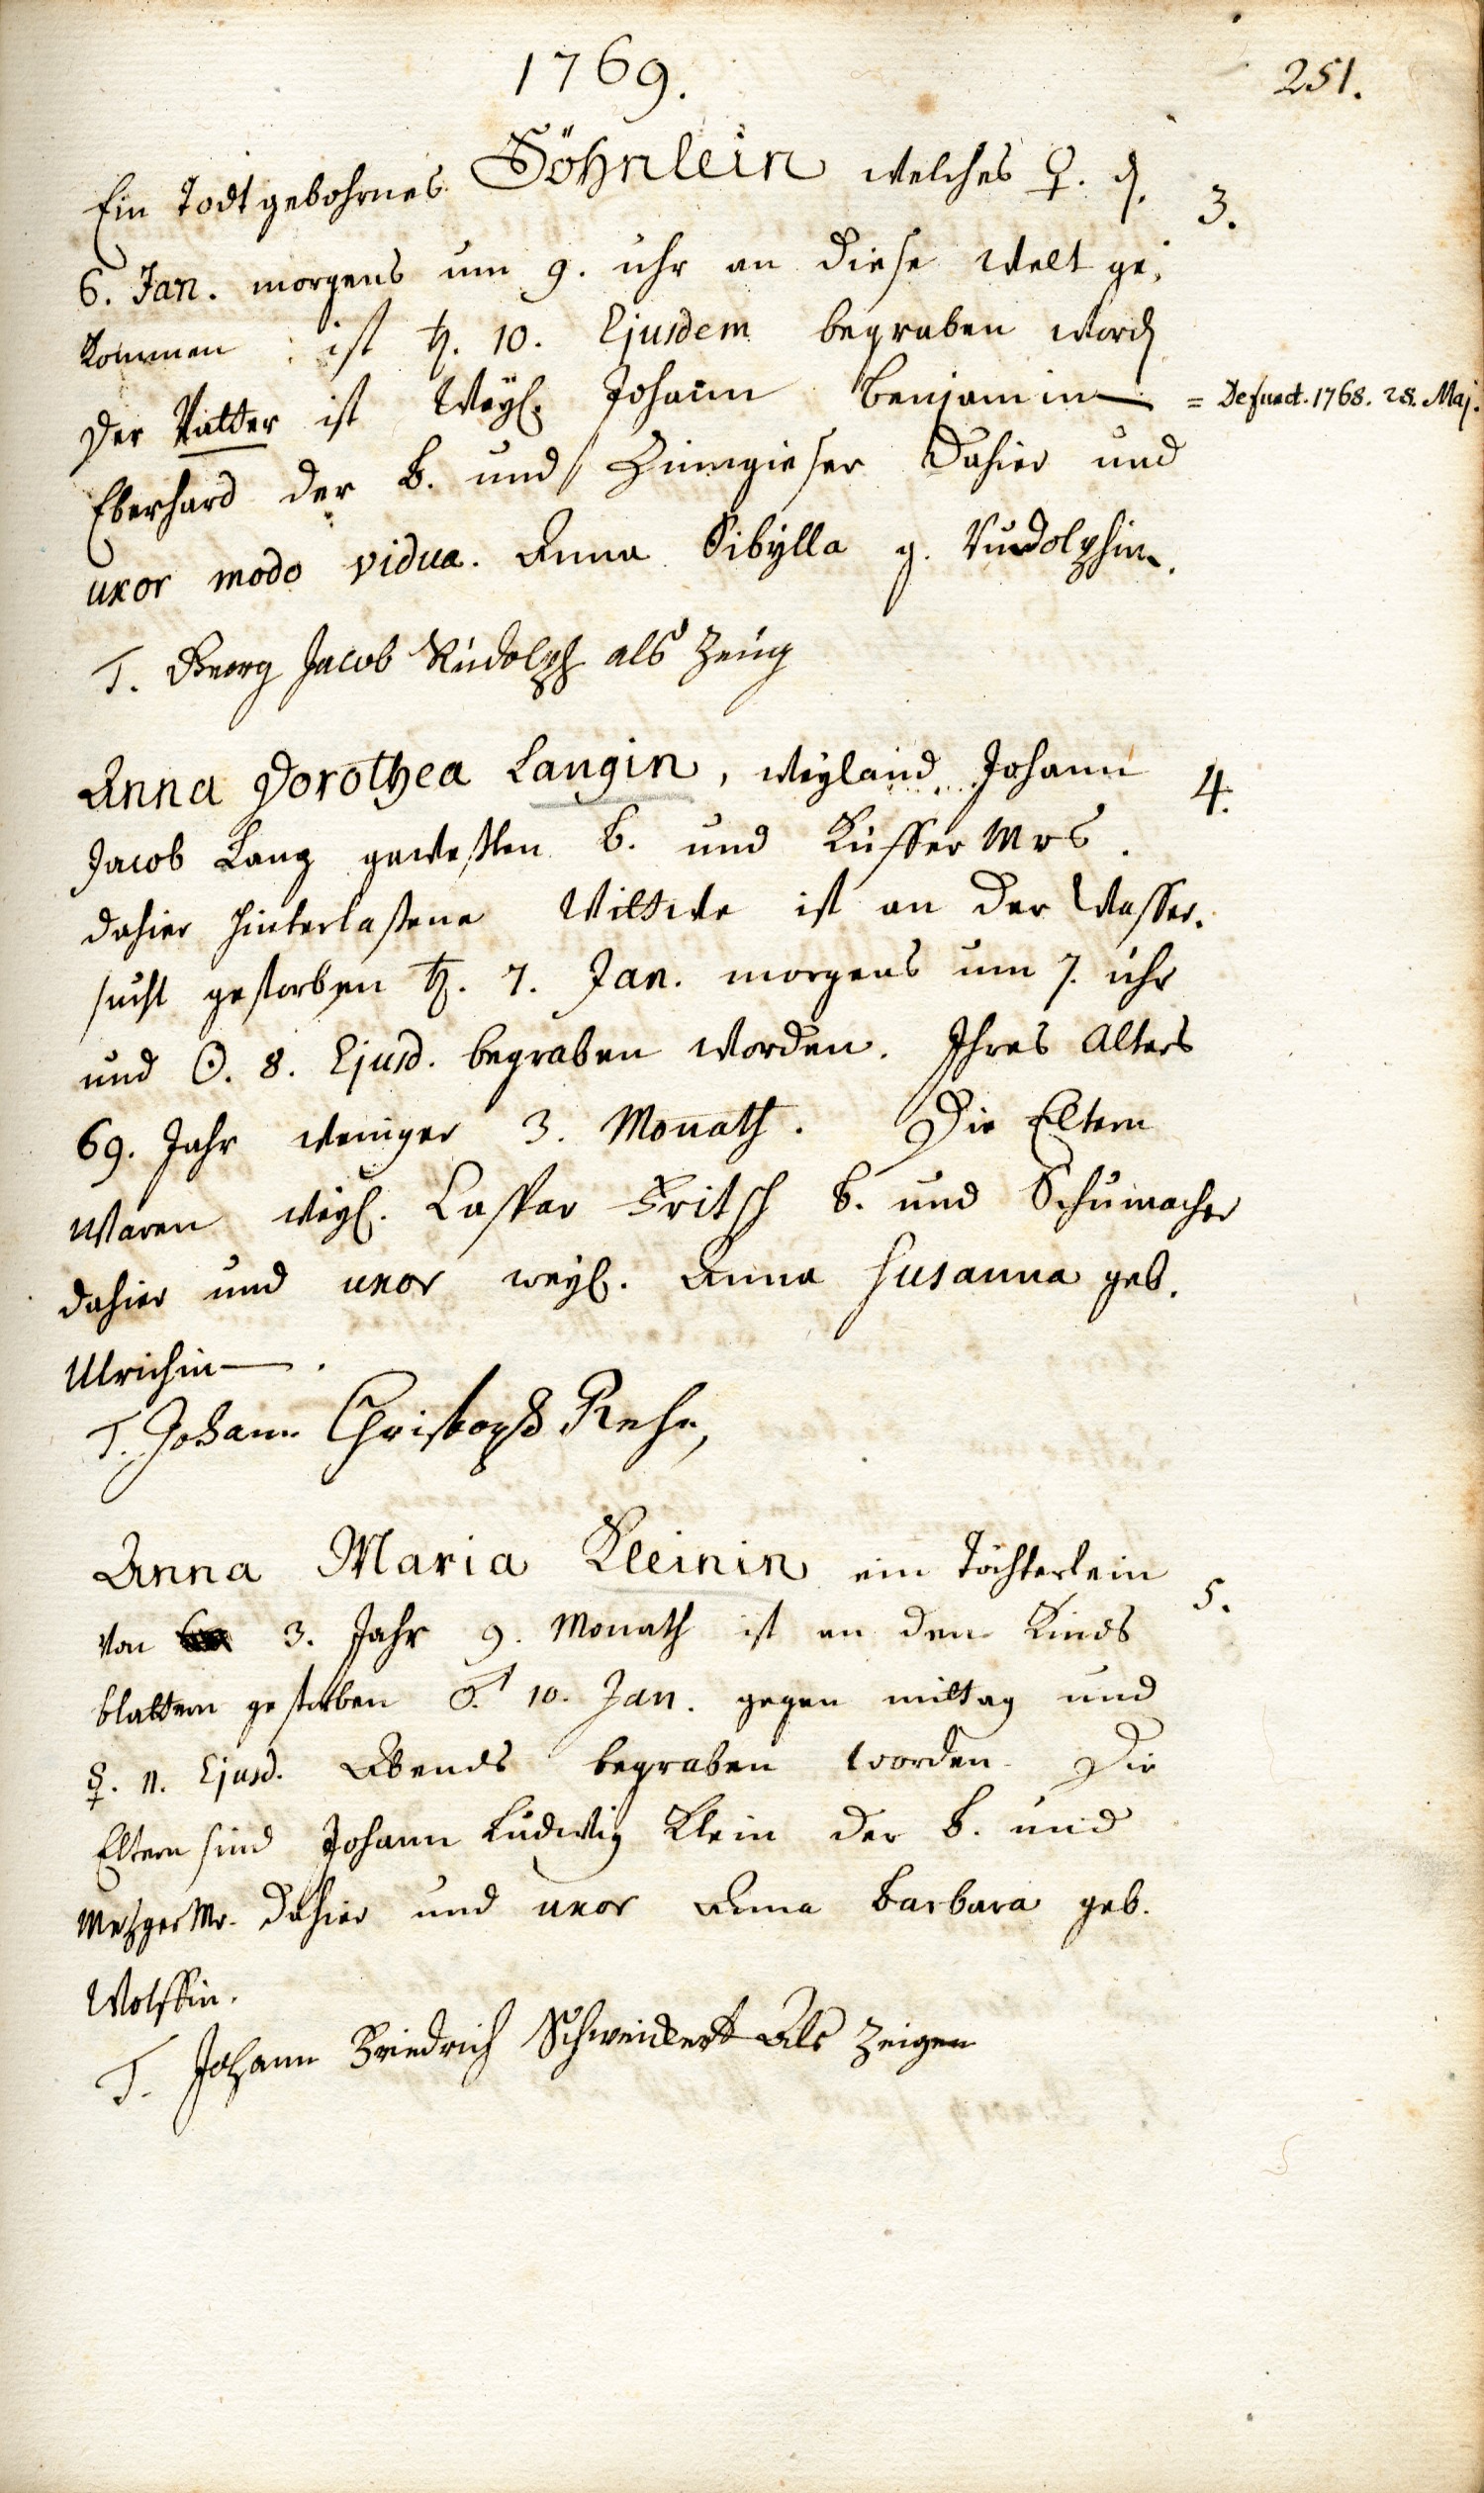 1769.
251.
Ein Todt gebohrnes Söhnlein welches ♀. d.
3.
6. Jan. morgens um 9. uhr an diese welt ge-
kommen ist ♄. 10. Ejusdem begraben word
Der Vatter ist Weyl. Johann Benjamin
= Defunct. 1768. 28. Maj.
Eberhard der B. und Zinngieser dahier und
uxor modo vidua. Anna Sibylla g. Rudolphin.
T. Georg Jacob Rudolph als Zeug
Anna Dorothea Langin, weyland Johann
4.
Jacob Lang geweßten B. und Küffer Mrs.
dahier hinterlaßene Wittwe ist an der Wasser-
sucht gestorben ♄. 7. Jan. morgens um 7. uhr
und ☉. 8. Ejusd. begraben worden. Ihres Alters
69. Jahr weniger 3. Monath. Die Eltern
Waren weyl. Caspar Fritsch B. und Schumacher
dahier und uxor weyl. Anna Susanna geb.
Ulrichin.
T. Johann Christoph Rehr,
Anna Maria Kleinin ein Töchterlein
5.
von 3. Jahr 9. Monath ist an den Kinds
blattern gestorben ♂. 10. Jan. gegen mittag und
☿. 11. Ejusd. Abends begraben worden. Die
Eltern sind Johann Ludwig Klein der B. und
Metzger Mr. dahier und uxor Anna Barbara geb.
Wolffin.
T. Johann Friedrich Schweickert Als Zeigen